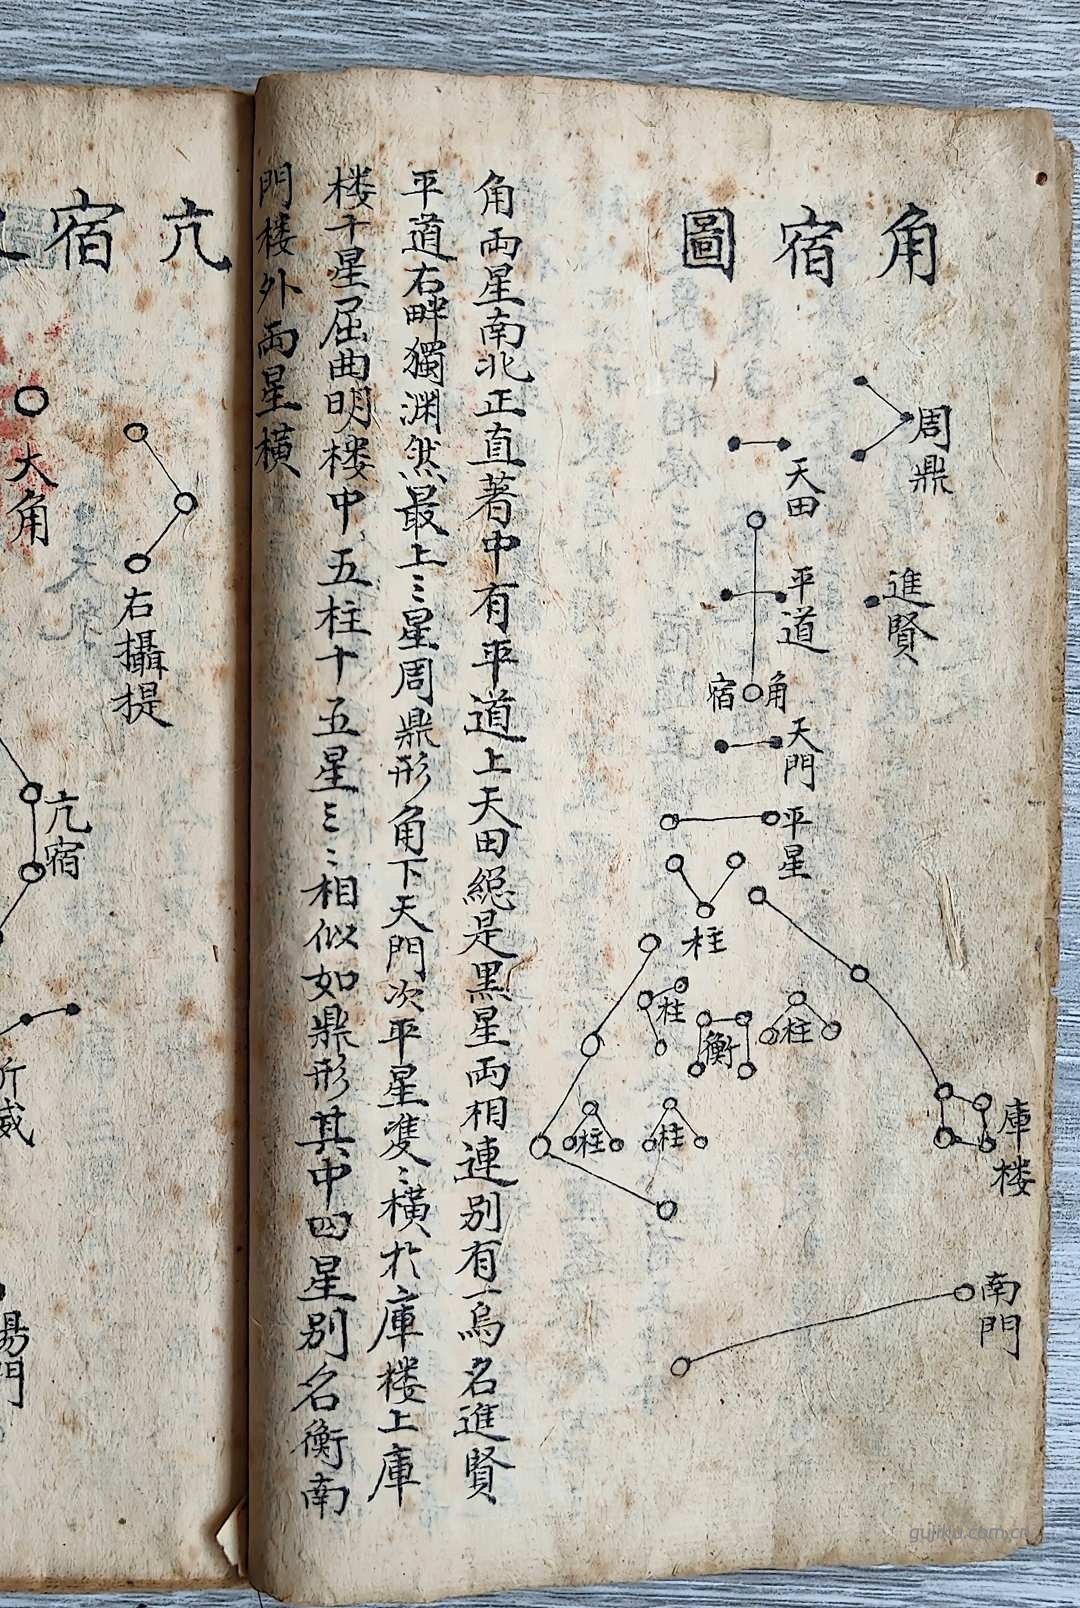 角宿圖
周鼎
天田
平道
進賢
角宿
天門
平星
柱
柱
衡
柱
柱
柱
庫楼
南門
角兩星南北正直著中有平道上天田緫是黒星兩相連別有一烏名進賢
平道右畔獨渊然最上三星周鼎形角下天門次平星䨇〻橫扵庫楼上庫
楼十星屈曲明楼中五柱十五星三〻相似如鼎形其中四星別名衡南
門楼外兩星橫
亢宿
大角
右攝提
亢宿
威
門
gujiku.com.cn